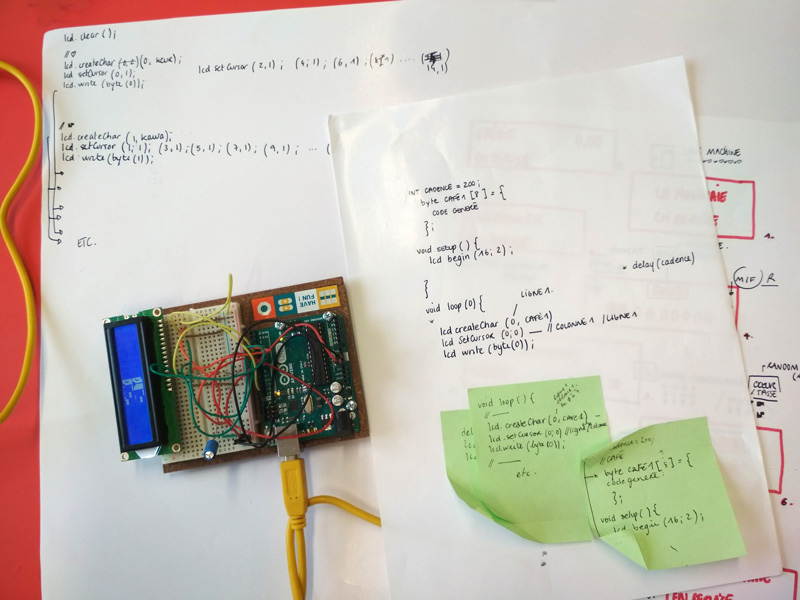 lcd. clear ( );
lcd. createChar (0, kawa);
lcd setCursor (0,1);
lcd. write (byte(0));
lcd setCursor (2,1); (4;1); (6,1); (8,1) ....
14,1)
lcd. createChar (1, kawa);
lcd. setCursor (1; 1); (3,1); (5,1); (7,1); (9,1); ... (
lcd write (byte(1));
ETC.
INT CADENCE = 200;
byte CAFÉ1 [8] = {
CODE GENERÉ
};
void setup () {
lcd begin (16; 2);
}
* delay (cadence)
void loop (0) {
LIGNE 1.
lcd createChar (0, CAFÉ1)
lcd setCursor (0; 0) — // COLONNE 1 / LIGNE 1
lcd write (byte(0));
void loop () {
// ——
lcd. createChar (0, CAFÉ1)
lcd. setCursor (0; 0)
lcd write (byte(0));
// ——
etc.
// CAFÉ
byte CAFÉ1 [8] = {
code generé.
};
void setup () {
lcd begin (16; 2);
HAVE
FUN!
MACHINE
AIE
E.
1.
MIF) R
4.
RANDOM
COEUR
TASSE
6.